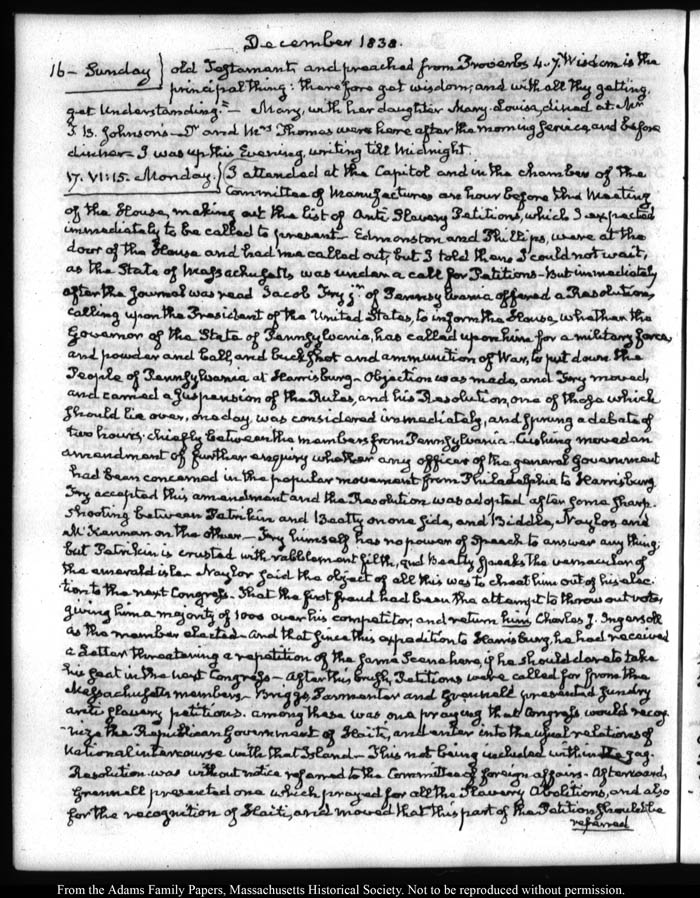 December 1838.
16 - Sunday } old Testament, and preached from Proverbs 4. 7. Wisdom is the
principal thing: therefore get wisdom; and with all thy getting,
get Understanding." - Mary, with her daughter Mary Louisa, dined at Mr
J. B. Johnson's - Dr and Mrs Thomas were here after the morning service, and before
dinner - I was up this Evening, writing till Midnight
17. VI:15. Monday. } I attended at the Capitol and in the chamber of the
Committee of Manufactures an hour before the Meeting
of the House, making out the list of Anti Slavery Petitions, which I expected
immediately to be called to present - Edmonston and Phillips, were at the
door of the House and had me called out, but I told them I could not wait,
as the State of Massachusetts was under a call for Petitions - But immediately
after the Journal was read Jacob Fry jr. of Pennsylvania offered a Resolution,
calling upon the President of the United States, to inform the House, whether the
Governor of the State of Pennsylvania, has called upon him for a military force,
and powder and ball, and buckshot and ammunition of War, to put down the
People of Pennsylvania at Harrisburg - Objection was made, and Fry moved,
and carried a suspension of the Rules, and his Resolution, one of those which
should lie over, one day was considered immediately, and sprung a debate of
two hours, chiefly between the members from Pennsylvania - Cushing moved an
amendment of further enquiry whether any officer of the general Government
had been concerned in the popular movement from Philadelphia to Harrisburg
Fry accepted this amendment and the Resolution was adopted after some sharp
shooting between Petrikin and Beatty on one side, and Biddle, Naylor and
McKennan on the other - Fry himself has no power of speech to answer any thing;
but Petrikin is crusted with rabblement filth, and Beatty speaks the vernacular of
the emerald isle. Naylor said the object of all this was to cheat him out of his elec-
tion to the next Congress. That the first fraud had been the attempt to throw out votes,
giving him a majority of 1000 over his competitor, and return him, Charles J. Ingersoll
as the member elected - and that since this expedition to Harrisburg, he had received
a Letter threatening a repetition of the same scene here, if he should dare to take
his seat in the next Congress - After this brush, Petitions were called for from the
Massachusetts members - Briggs, Parmenter and Grennell presented sundry
anti slavery petitions. among these was one praying that Congress would recog-
-nize the Republican Government of Haiti, and enter into the usual relations of
National intercourse with that Island - This not being included within the gag-
Resolution was without notice referred to the Committee of foreign affairs. Afterwards,
Grennell presented one which prayed for all the Slavery Abolitions, and also
for the recognition of Haiti, and moved that this part of the Petition should be
referred
From the Adams Family Papers, Massachusetts Historical Society. Not to be reproduced without permission.